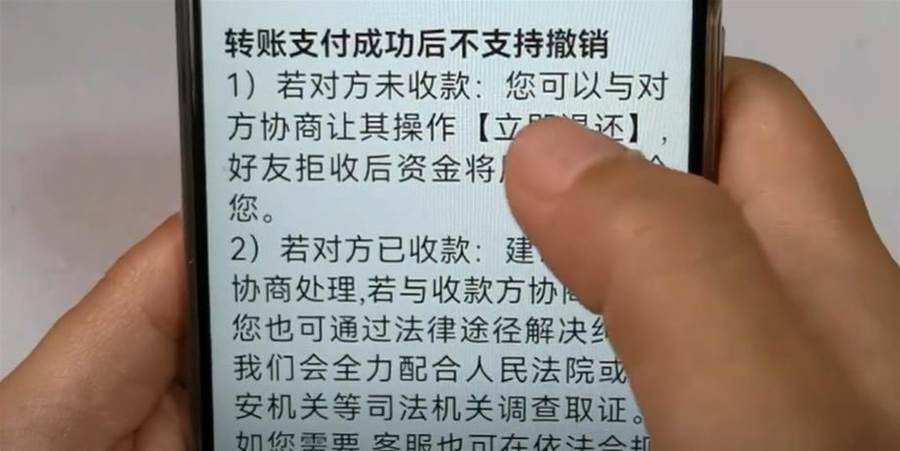 转账支付成功后不支持撤销
1）若对方未收款：您可以与对
方协商让其操作【立即退还】,
好友拒收后资金将
您。
2）若对方已收款：建
协商处理,若与收款方协
您也可通过法律途径解决纠
我们会全力配合人民法院或
安机关等司法机关调查取证。
如您需要,客服也可在依法合规